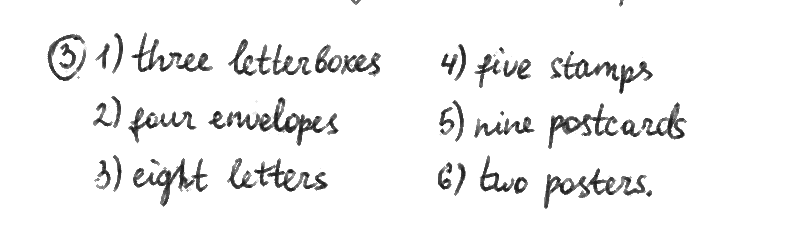 ③ 1) three letterboxes
2) four envelopes
3) eight letters
4) five stamps
5) nine postcards
6) two posters.